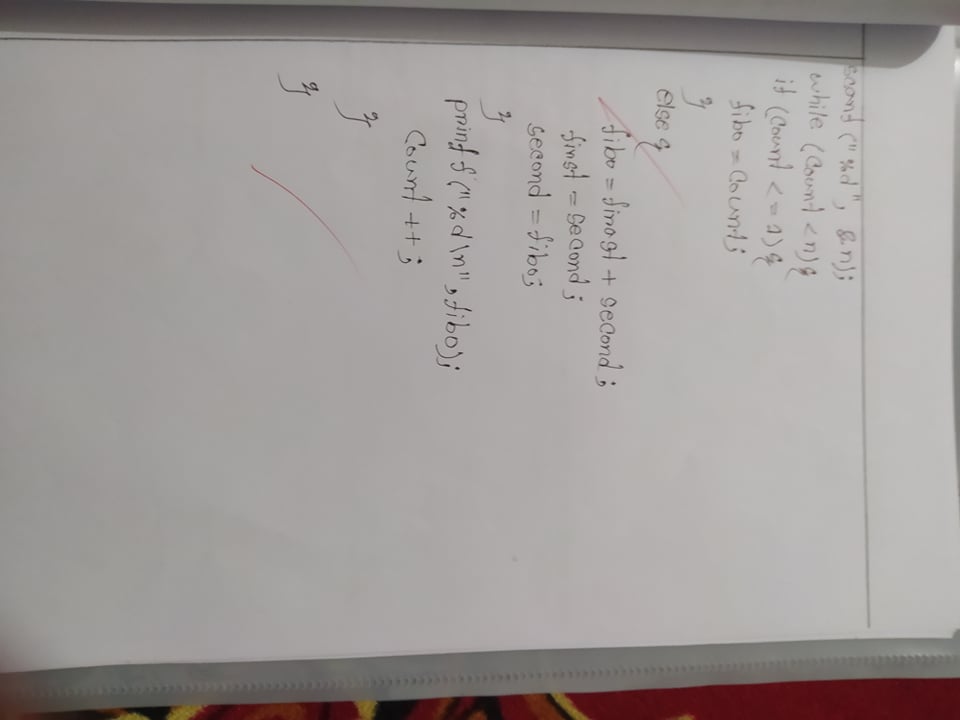 scanf ("%d", &n);
while (count < n) {
if (count <= 1) {
fibo = count;
}
else {
fibo = first + second;
first = second;
second = fibo;
}
printf ("%d\n", fibo);
count ++;
}
}